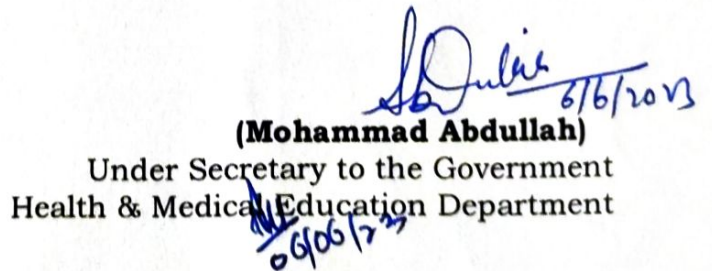 6/6/2023
(Mohammad Abdullah)
Under Secretary to the Government
Health & Medical Education Department
06/06/23